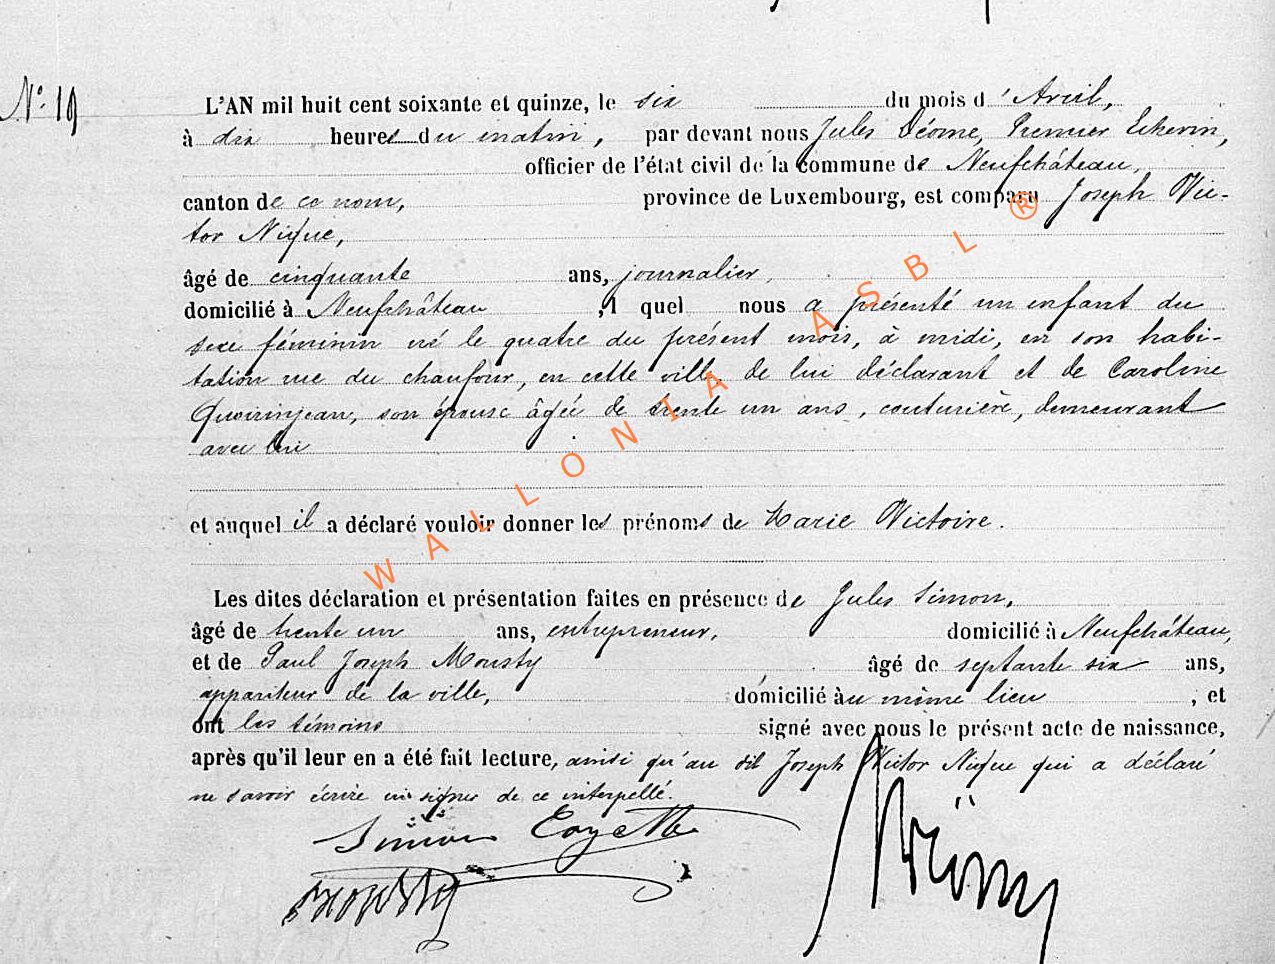 N° 19
L'AN mil huit cent soixante et quinze, le six du mois d'Avril,
à dix heures du matin, par devant nous Jules Déome, Premier Echevin,
officier de l'état civil de la commune de Neufchâteau,
canton de ce nom, province de Luxembourg, est comparu Joseph Vic-
tor Nique,
âgé de cinquante ans, journalier,
domicilié à Neufchâteau, l quel nous a présenté un enfant du
sexe féminin né le quatre du présent mois, à midi, en son habi-
tation rue du chaufour, en cette ville de lui déclarant et de Caroline
Quoirinjean, son épouse âgée de trente un ans, couturière, demeurant
avec lui
et auquel il a déclaré vouloir donner les prénoms de Marie Victoire.
Les dites déclaration et présentation faites en présence de Jules Simon,
âgé de trente un ans, entrepreneur, domicilié à Neufchâteau,
et de Paul Joseph Mousty âgé de septante six ans,
appariteur de la ville, domicilié au même lieu, et
ont les témoins signé avec nous le présent acte de naissance,
après qu'il leur en a été fait lecture, ainsi qu'au dit Joseph Victor Nique qui a déclaré
ne savoir écrire ni signer de ce interpellé.
Simon
Mousty
WALLONIA ASBL ®